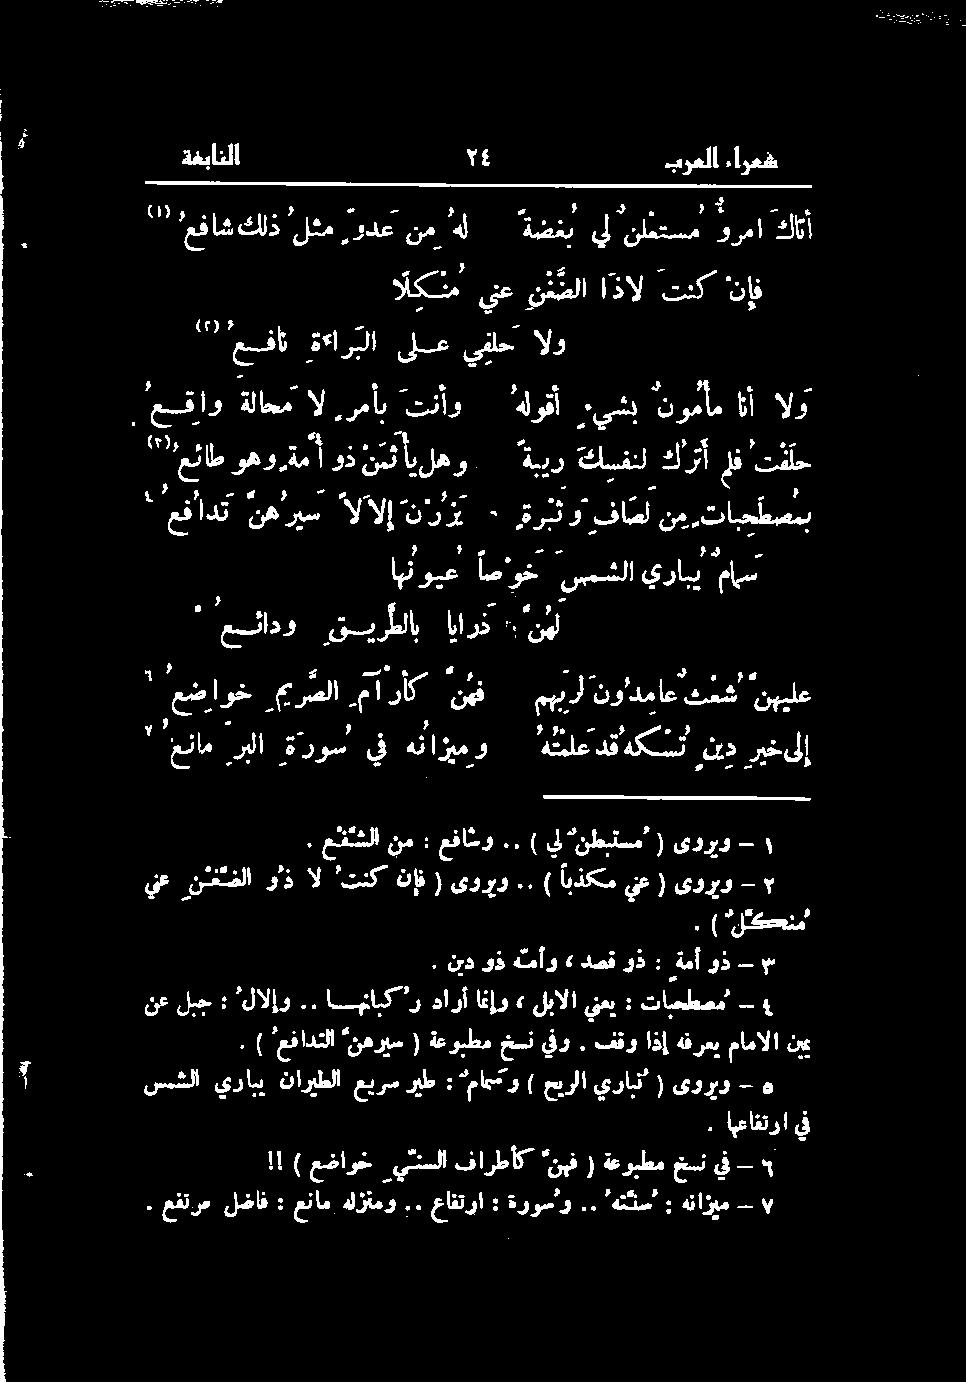 شعراء العرب ٢٤ النابغة
أتاكَ امرؤٌ مُستعْلنٌ لي بُغضةً لهُ مِن عَدوٍّ مِثلُ ذلكَ شافعُ (١)
فإنْ كنتَ لاذَا الضَّغْنِ عني مُنْكِلاً
ولا حَلفِي على البَراءةِ نافعُ (٢)
وَلا أنا مأمُونٌ بشيءٍ أقولهُ وأنتَ بأمرٍ لا مَحالة واقعُ
حلَفتُ فلم أترُكْ لنفسِكَ ريبةً وهل يأثَمَنْ ذو أمّةٍ وهو طائعُ (٣)
بمُصطَحِباتٍ مِن لَصَافِ وثَبْرةٍ يَزُرْنَ إلالاً سَيرُهنَّ تَدافُعُ ٤
سَهامٌ يُباري الشمسَ خَوْصاً عُيونُها
لَهُنَّ ذَرايا بالطَّريقِ ودائعُ ٥
عليهنَّ شُعثٌ عامِدُونَ لِرَبِهم فهُنَّ كأرْآمِ الصَّريمِ خواضِعُ ٦
إلى خيرِ دِينٍ نُسْكهُ قدعَلمْتَهُ ومِيزانُه في سُورَةِ البرِّ ماتعُ ٧
١ – ويروى ( مُستبطنٌ لي ) .. وشافع : من الشَّفْع .
٢ – ويروى ( عني مكذبأ ) .. ويروى ( فإن كنتُ لا ذو الضَّغْنِ عني
مُنكَّلٌ ) .
٣ – ذو أمةِ : ذو قصد ، وأمّته ذو دين .
٤ – مُصطحبات : يعني الابل ، وإنما أراد رُكبانها .. وإلالُ : جبل عن
يمين الامام يعرفه إذا وقف . وفي نسخ مطبوعة ( سيرهنَّ التدافعُ ) .
٥ – ويروى ( تُباري الريح ) وسَهامٌ : طير سريع الطيران يباري الشمس
في ارتفاعها .
٦ – في نسخ مطبوعة ( فهنَّ كأطراف السنّيِ خواضع ) !!
٧ – ميزانه : سُنَّتهُ .. وسُورة : ارتفاع .. ومنزله ماتع : فاضل مرتفع .